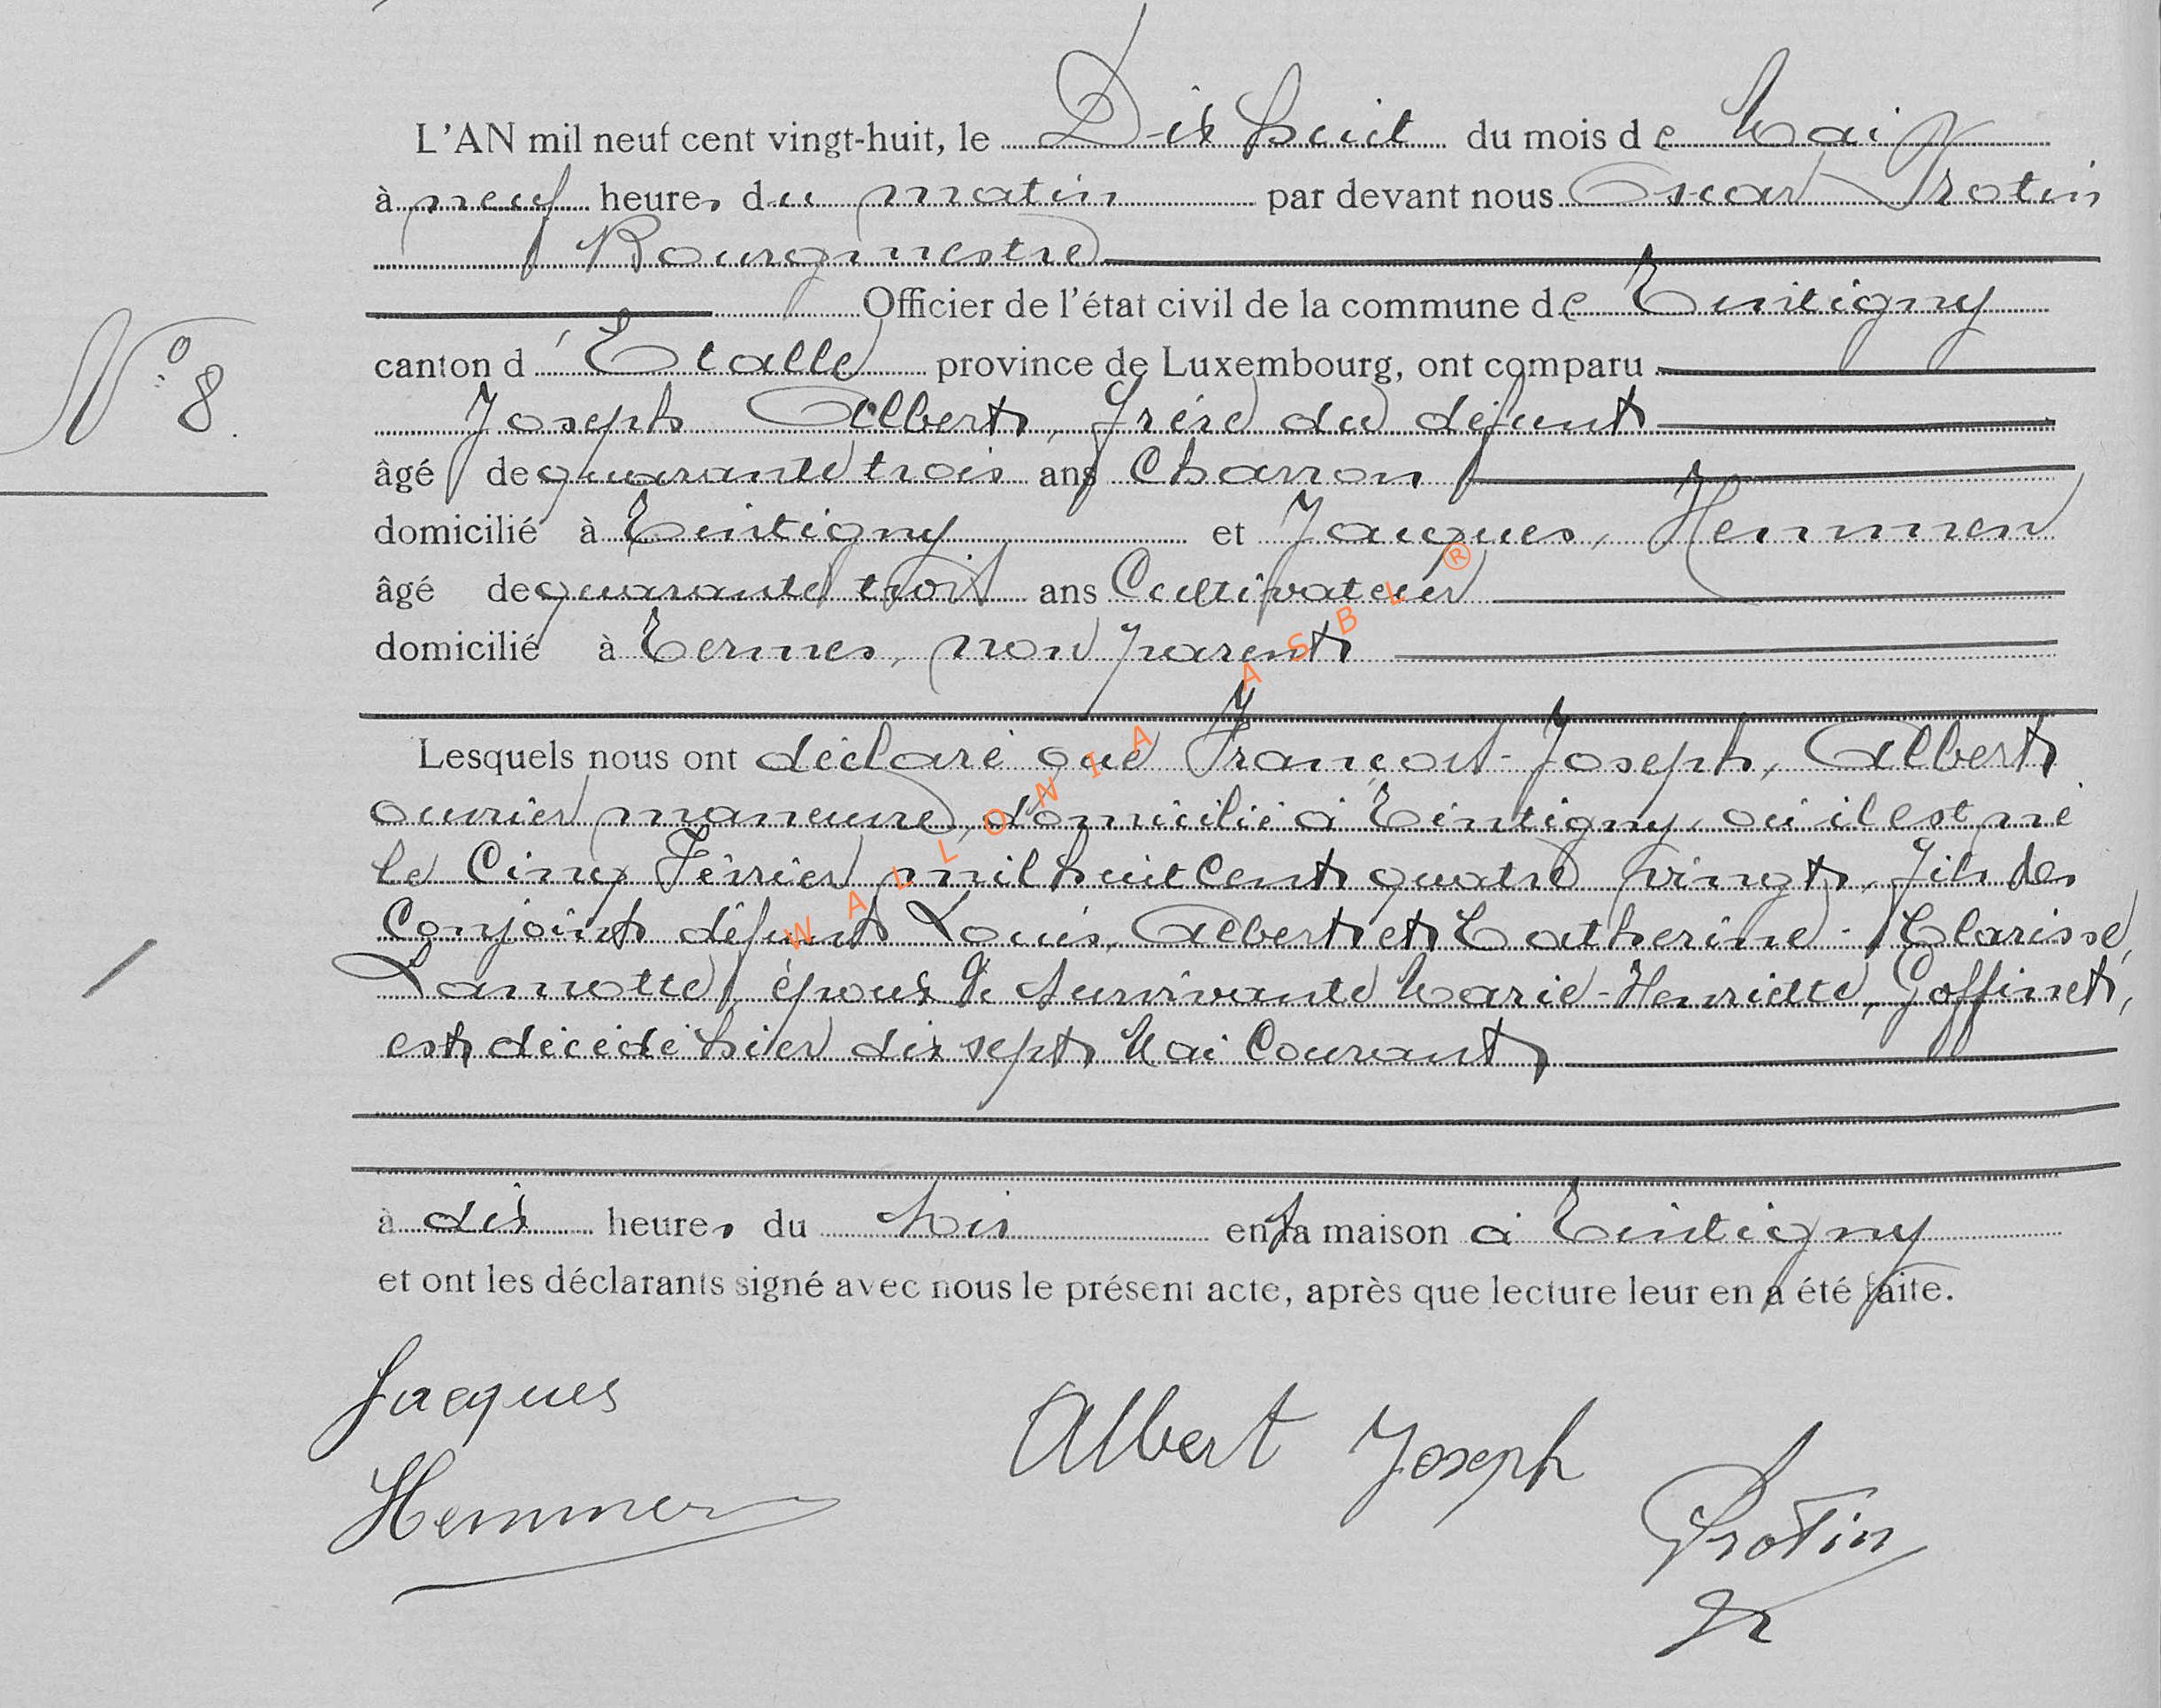 L'AN mil neuf cent vingt-huit, le Dix huit du mois de Mai
à neuf heures du matin par devant nous Oscar Protin
Bourgmestre
Officier de l'état civil de la commune de Tintigny
N° 8
canton d'Etalle province de Luxembourg, ont comparu
Joseph Albert, frère du défunt
âgé de quarante trois ans Charron
domicilié à Tintigny et Jacques, Hemmer
âgé de quarante trois ans Cultivateur
domicilié à Termes, non parent
Lesquels nous ont déclaré que François-Joseph, Albert
ouvrier manœuvre, domicilié à Tintigny, où il est né
le Cinq Février mil huit Cent quatre vingt, fils des
Conjoints défunts Louis, Albert et Catherine-Clarisse,
Lamotte, époux de survivante Marie-Henriette, Goffinet,
est décédé hier dix sept Mai Courant
à dix heures du soir en sa maison à Tintigny
et ont les déclarants signé avec nous le présent acte, après que lecture leur en a été faite.
Jacques
Hemmer
Albert Joseph
Protin
WALLONIA ASBL ®